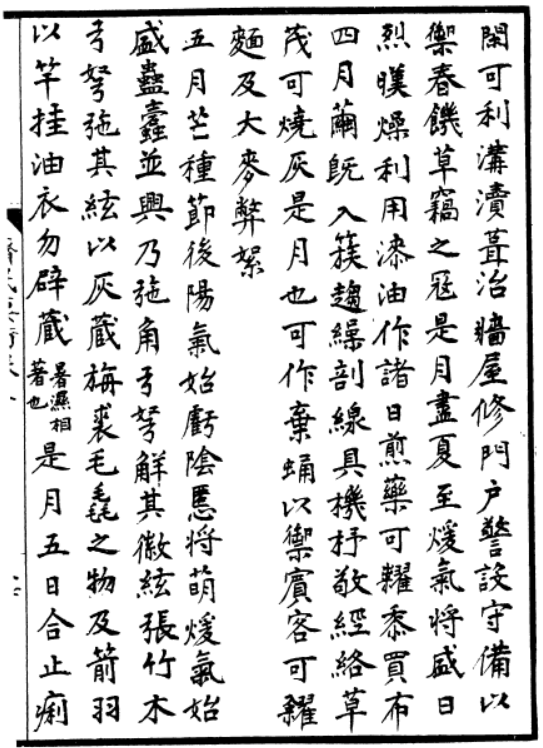 閑可利溝瀆葺治牆屋修門户警設守備以
禦春饑草竊之冦是月盡夏至煖氣將盛日
烈暵燥利用漆油作諸日煎藥可糶黍買布
四月繭既入簇趨繰剖線具機杼敬經絡草
茂可燒灰是月也可作棄蛹以禦賓客可糴
麵及大麥弊絮
五月芒種節後陽氣始虧陰慝將萌煖氣始
盛蠱蠹並興乃弛角弓弩解其徽絃張竹木
弓弩弛其絃以灰藏旃裘毛毳之物及箭羽
以竿挂油衣勿辟藏暑濕相著也是月五日合止痢